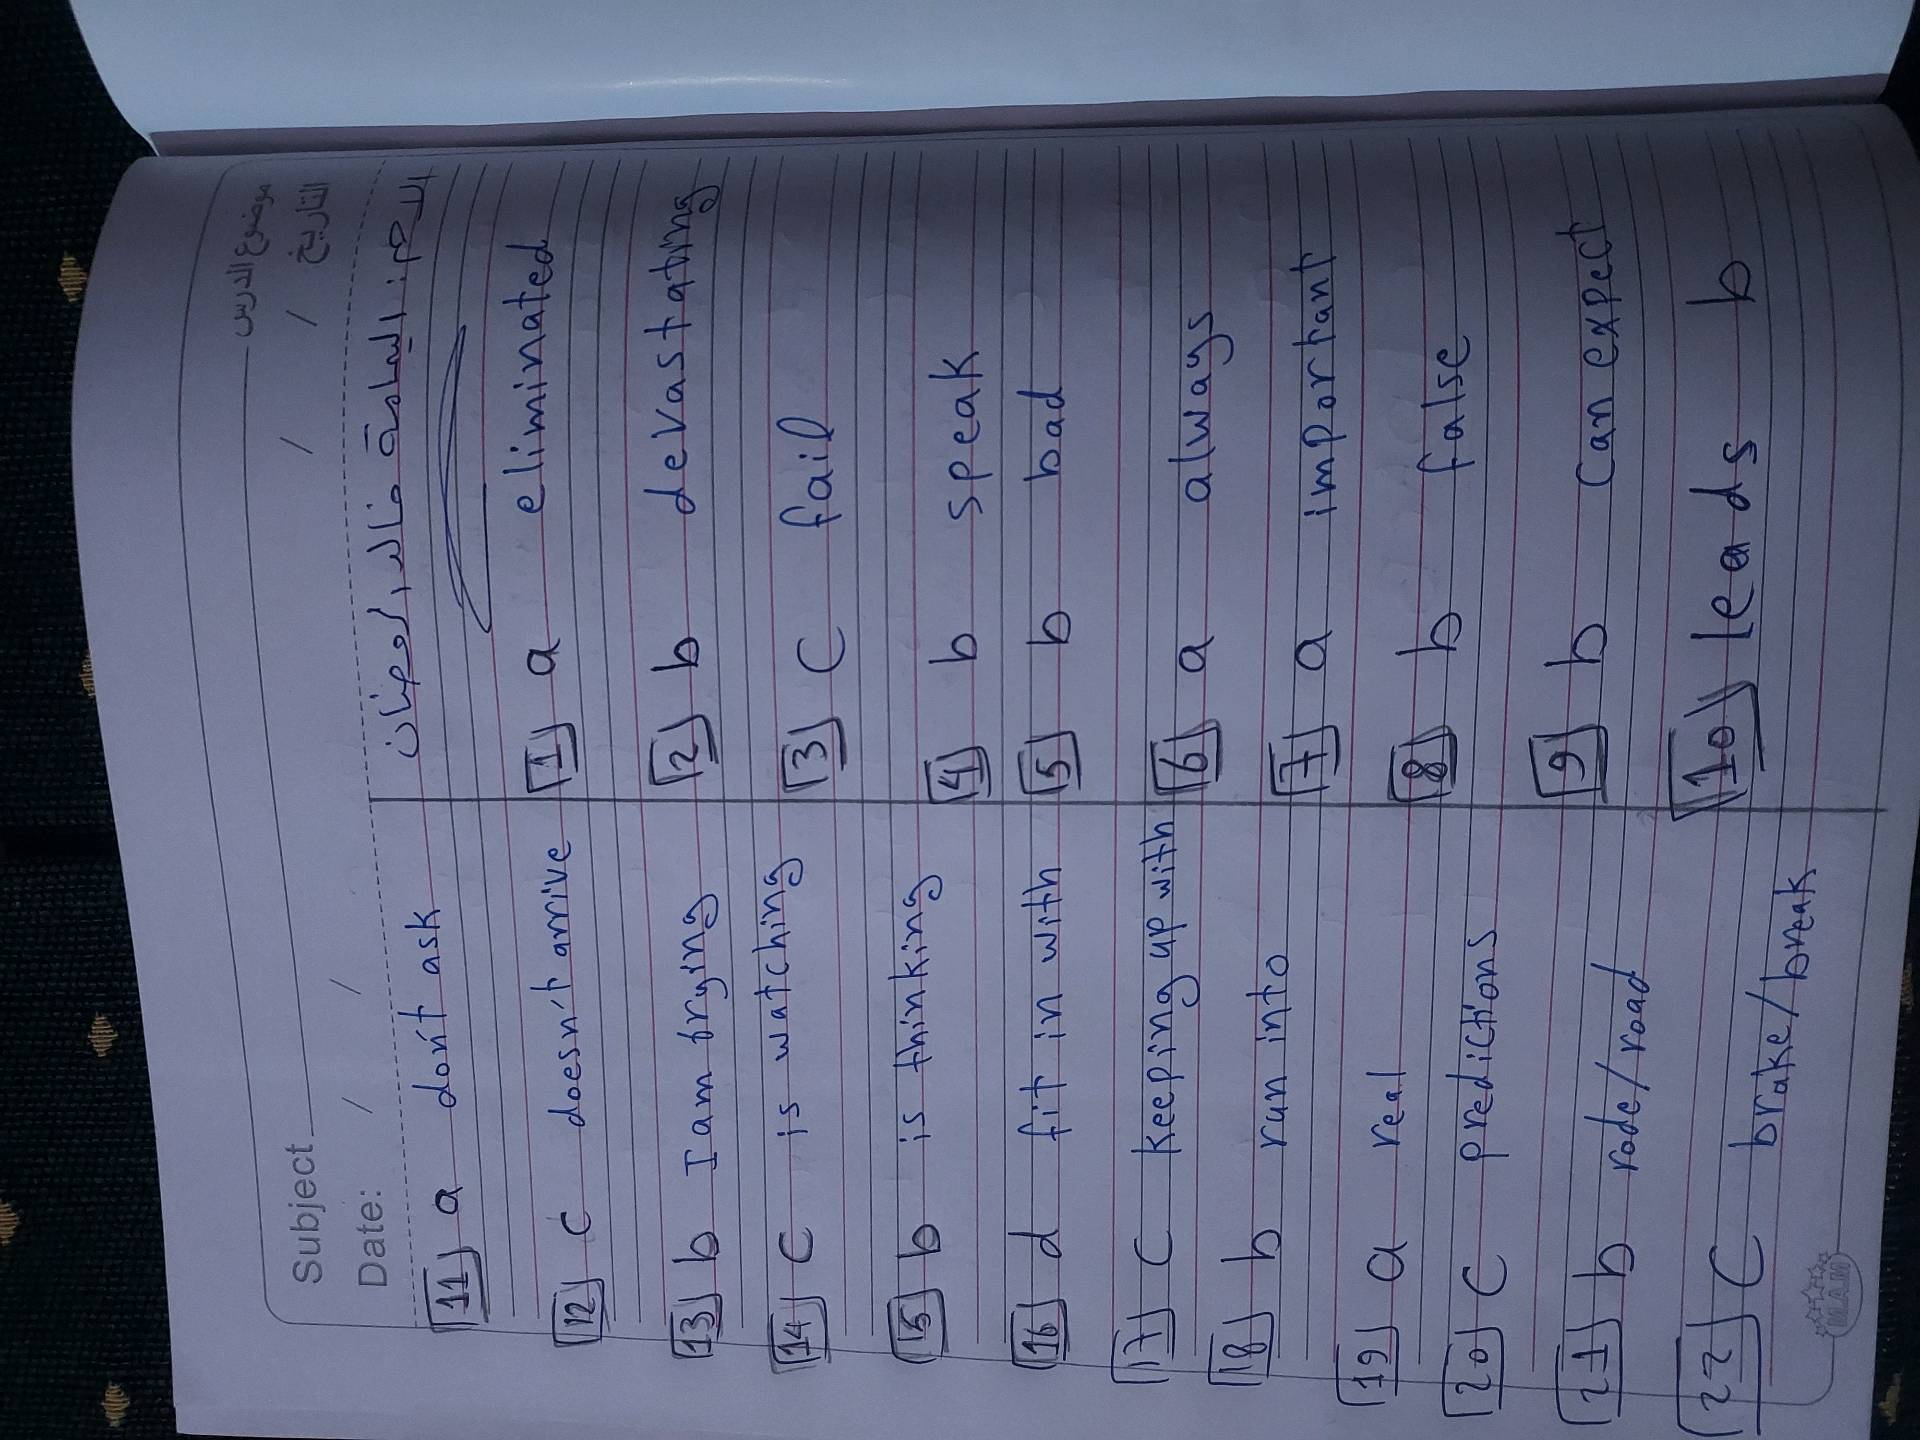 Subject موضوع الدرس
Date: / / / / التاريخ
11 a don't ask
12 c doesn't arrive
13 b I am trying
14 c is watching
15 b is thinking
16 d fit in with
17 c keeping up with
18 b run into
19 a real
20 c predictions
21 b rode/road
22 c brake/break
1 a eliminated
2 b devastating
3 c fail
4 b speak
5 b bad
6 a always
7 a important
8 b false
9 b can expect
10 leads b